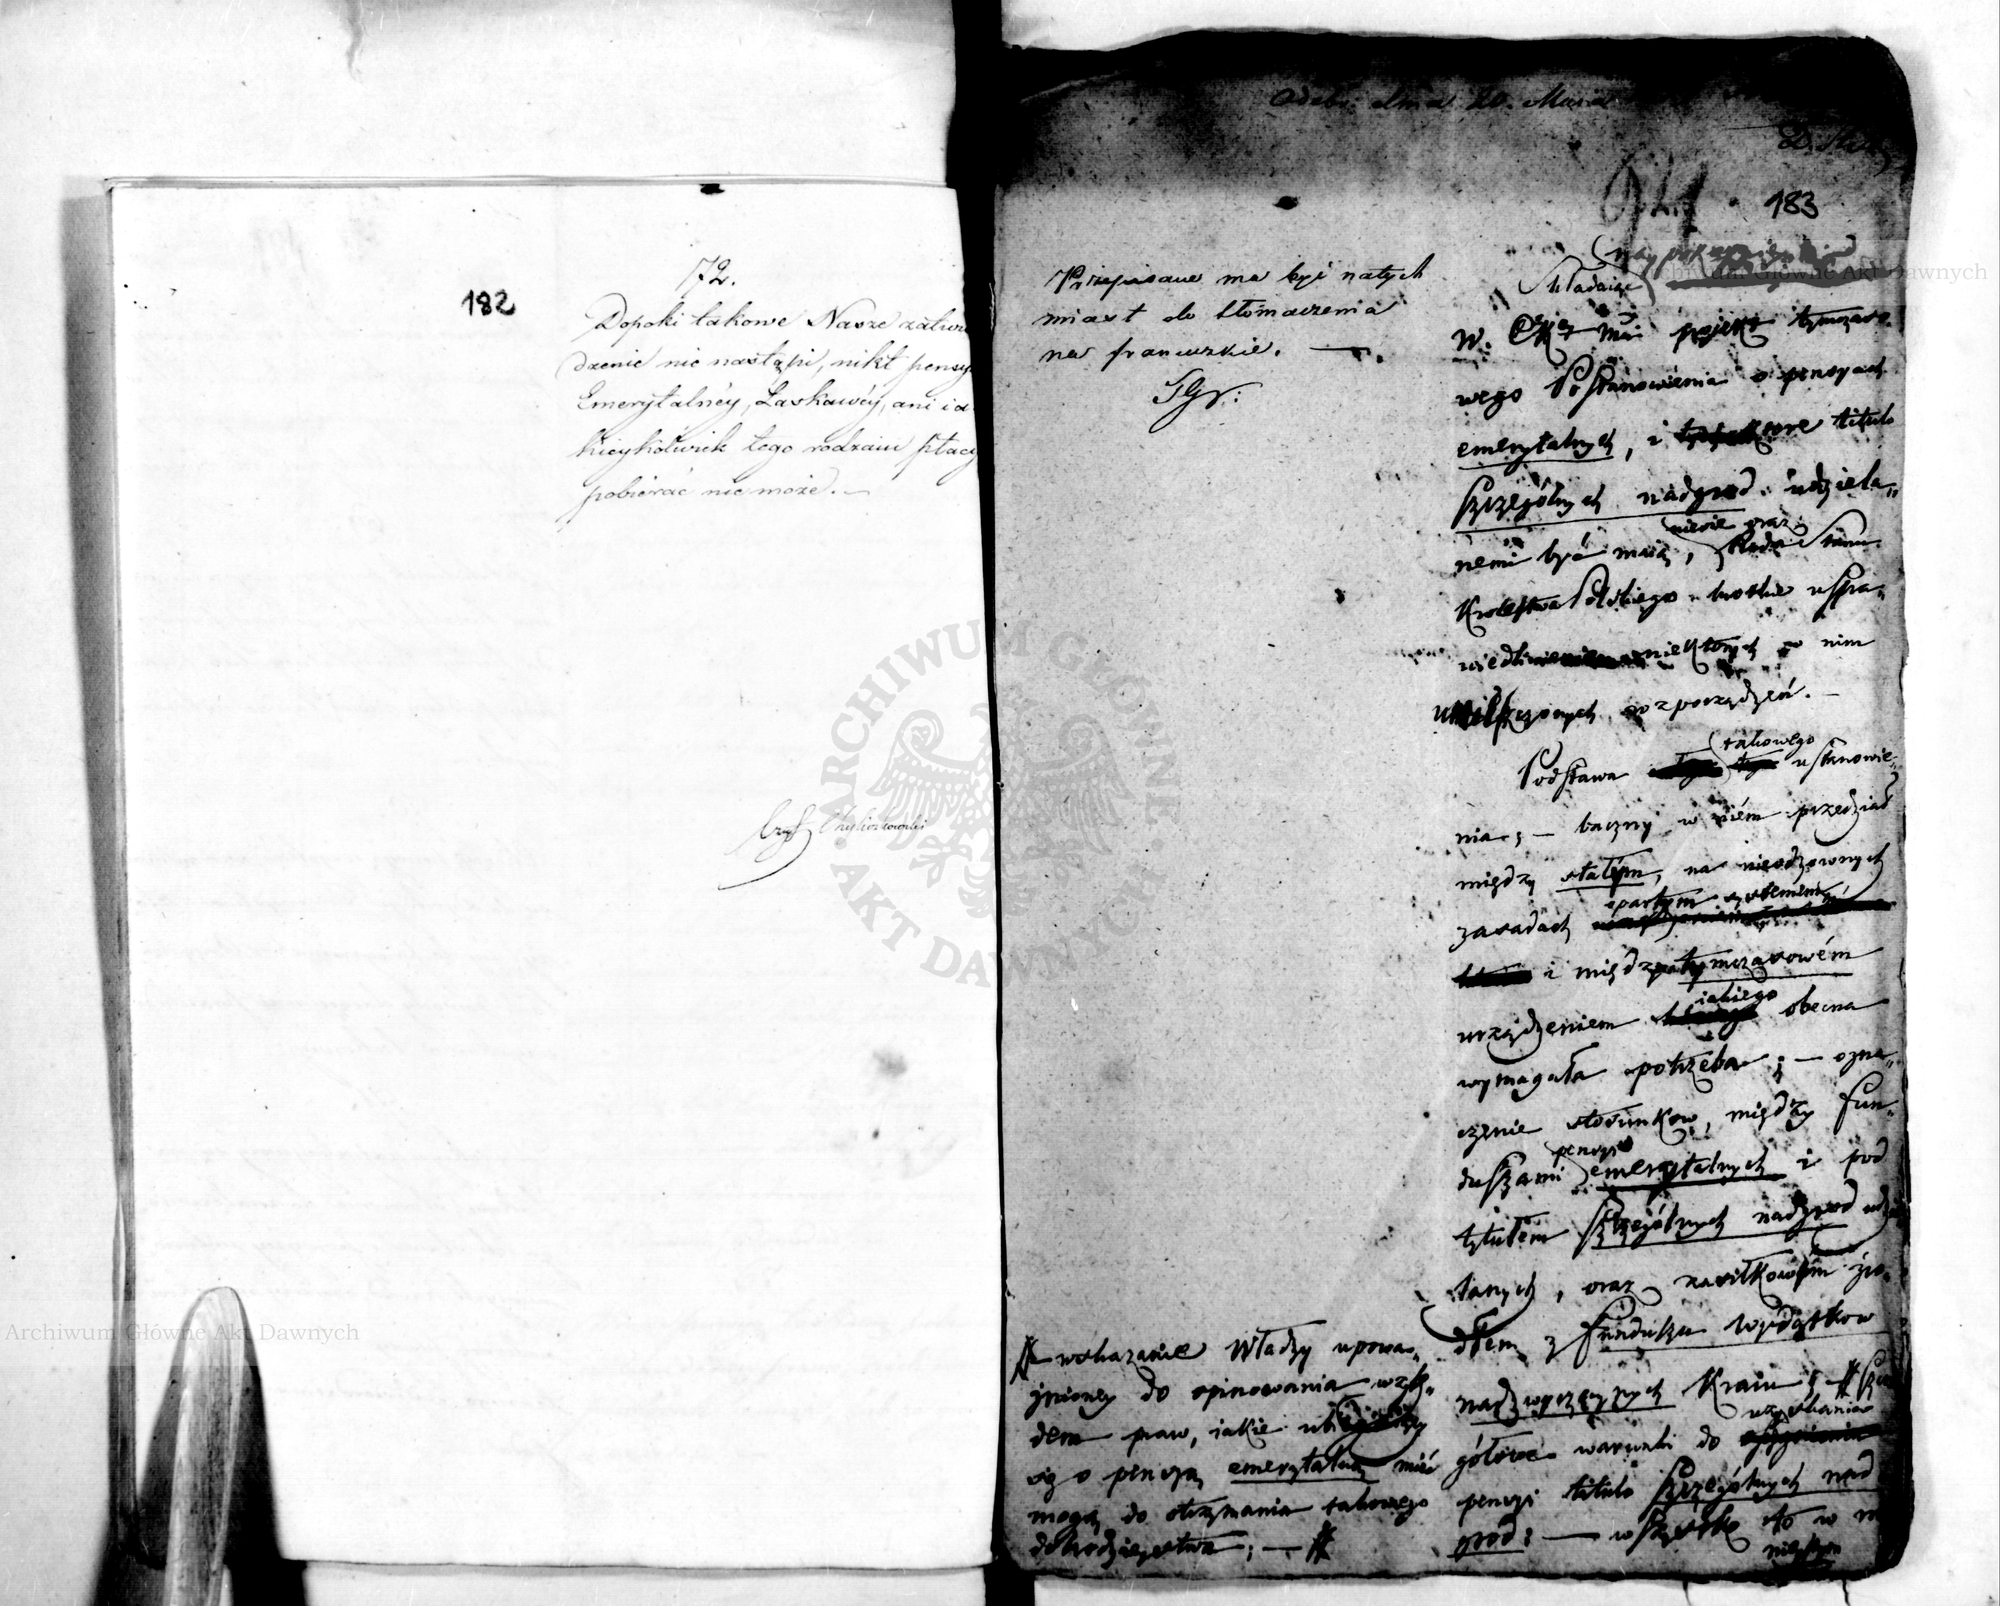 182
72.
Dopoki takowe Nasze zatwier
dzenie nie nastąpi, nikt pensyi
Emerytalnéy, Łaskawéy, ani ia
kieykolwiek tego rodzaiu płacy
pobierać nie może. —
Odebr. dnia 20. Maia
183
Przepisane ma być natych
miast do tłomaczenia
na francuzkie. —
Składaiąc
W. Xiężmci projekt tymczaso-
wego Postanowienia o pensyach
emerytalnych, i które titulo
szczególnych nadgrod udziela„
nemi być maią, niesie oraz Rada Stanu
Krolestwa Polskiego krotkie uspra„
wiedliwienie niektorych w nim
umieszczonych rozporządzeń. —
Podstawa takowego ustanowie„
nia; — baczny w niém przedział
między stałym, na nieodzownych
zasadach opartym systemem,
i między tymczasowém
urządzeniem iakiego obecna
wymagała potrzeba; — ozna„
czenie stosunkow, między fun„
duszami pensyi emerytalnych i pod
tytułem szczególnych nadgrod udzie
lanych, oraz zasiłkowym źró„
dłem z funduszu wydatkow
nadzwyczaynych Kraiu; —
gółowe warunki do uzyskania
pensyi titulo szczególnych nad
grod; — wszystko to w
wskazanie Władzy upowa„
żnioney do opinowania wzglę„
dem praw, iakie ubiegaiący
się o pensyą emerytalną mieć
mogą do otrzymania takowego
dobrodzieystwa; —
Archiwum Główne Akt Dawnych
Archiwum Główne Akt Dawnych
ARCHIWUM GŁÓWNE AKT DAWNYCH